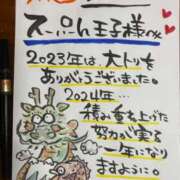 スーパン王子様
2023年は、大トリを
ありがうございました。
2024年…
積み重ね上げた
努力が実る
一年になり
ますように。